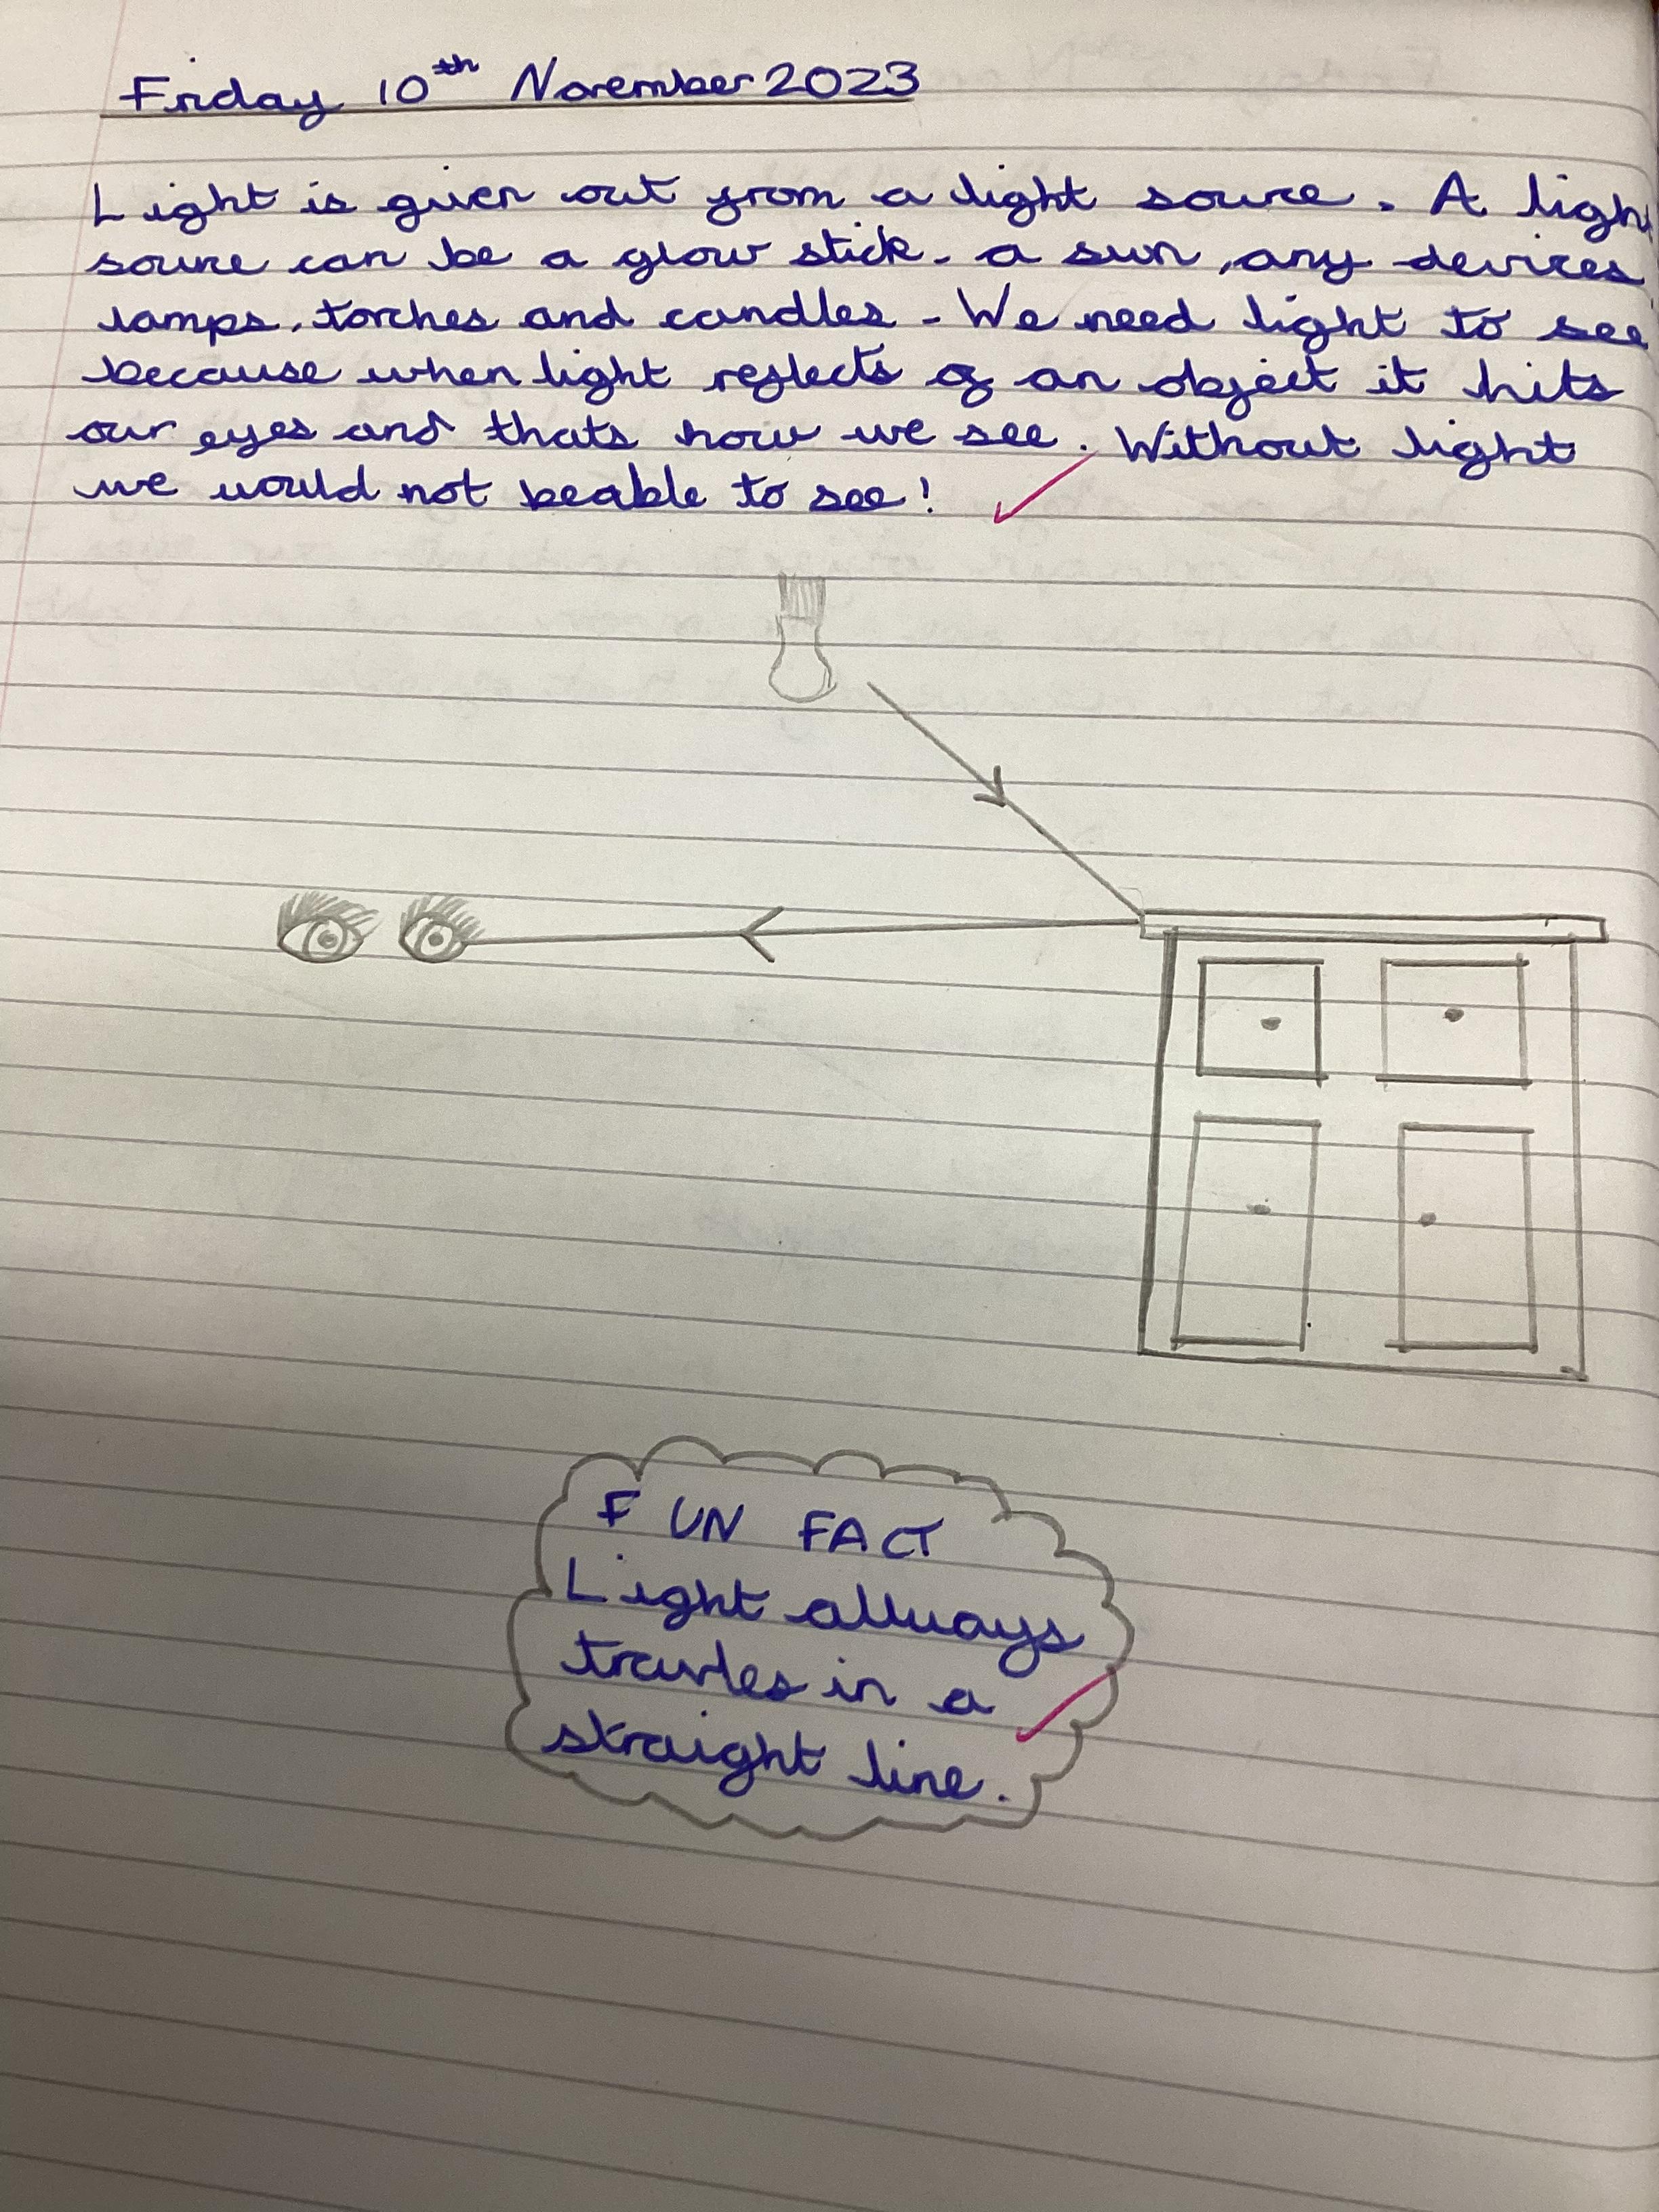 Friday 10th November 2023
Light is given out from a light sourse. A light
sourse can be a glow stick, a sun, any devices
lamps, torches and candles. We need light to see
because when light reflects of an object it hits
our eyes and thats how we see. Without light
we would not beable to see!
FUN FACT
Light allways
travles in a
straight line.